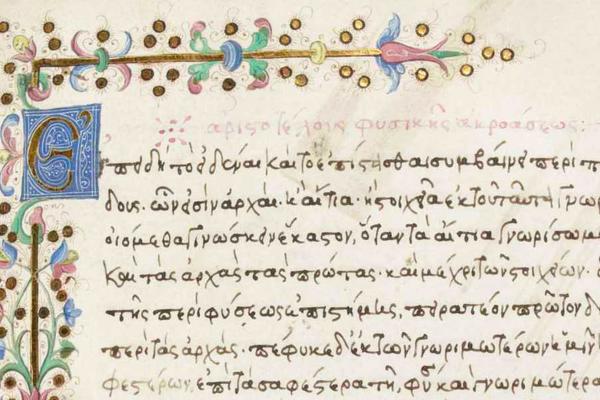 ἀριστοτέλους φυσικῆς ἀκροάσεως:
Ἐπειδὴ τὸ εἰδέναι καὶ τὸ ἐπίστασθαι συμβαίνει περὶ π
δους. ὧν εἰσὶν ἀρχαὶ· ἢ αἴτια· ἢ στοιχεῖα ἐκ τοῦ ταῦτα γνωρ
οἰόμεθα γινώσκειν ἕκαστον, ὅταν τὰ αἴτια γνωρίσωμε
καὶ τὰς ἀρχὰς τὰς πρώτας· καὶ μέχρι τῶν στοιχείων·
τῆς περὶ φύσεως ἐπιστήμης, πειρατέον πρῶτον δ
περὶ τὰς ἀρχάς. πέφυκε δὲ ἐκ τῶν γνωριμωτέρων ἡμῖν
φεστέρων, ἐπὶ τὰ σαφέστερα τῇ φύσει καὶ γνωριμώτερα